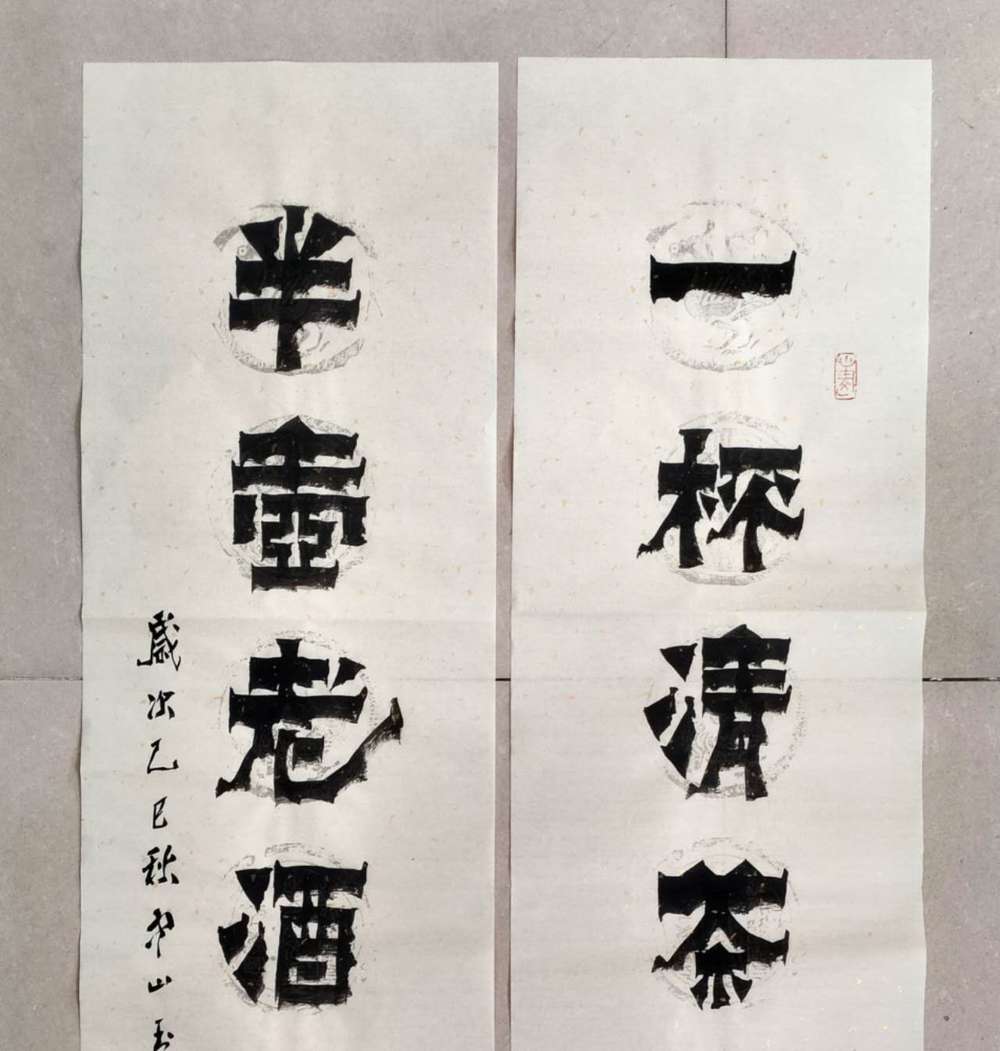 一杯清茶
半壶老酒
歲次乙巳秋
山玉